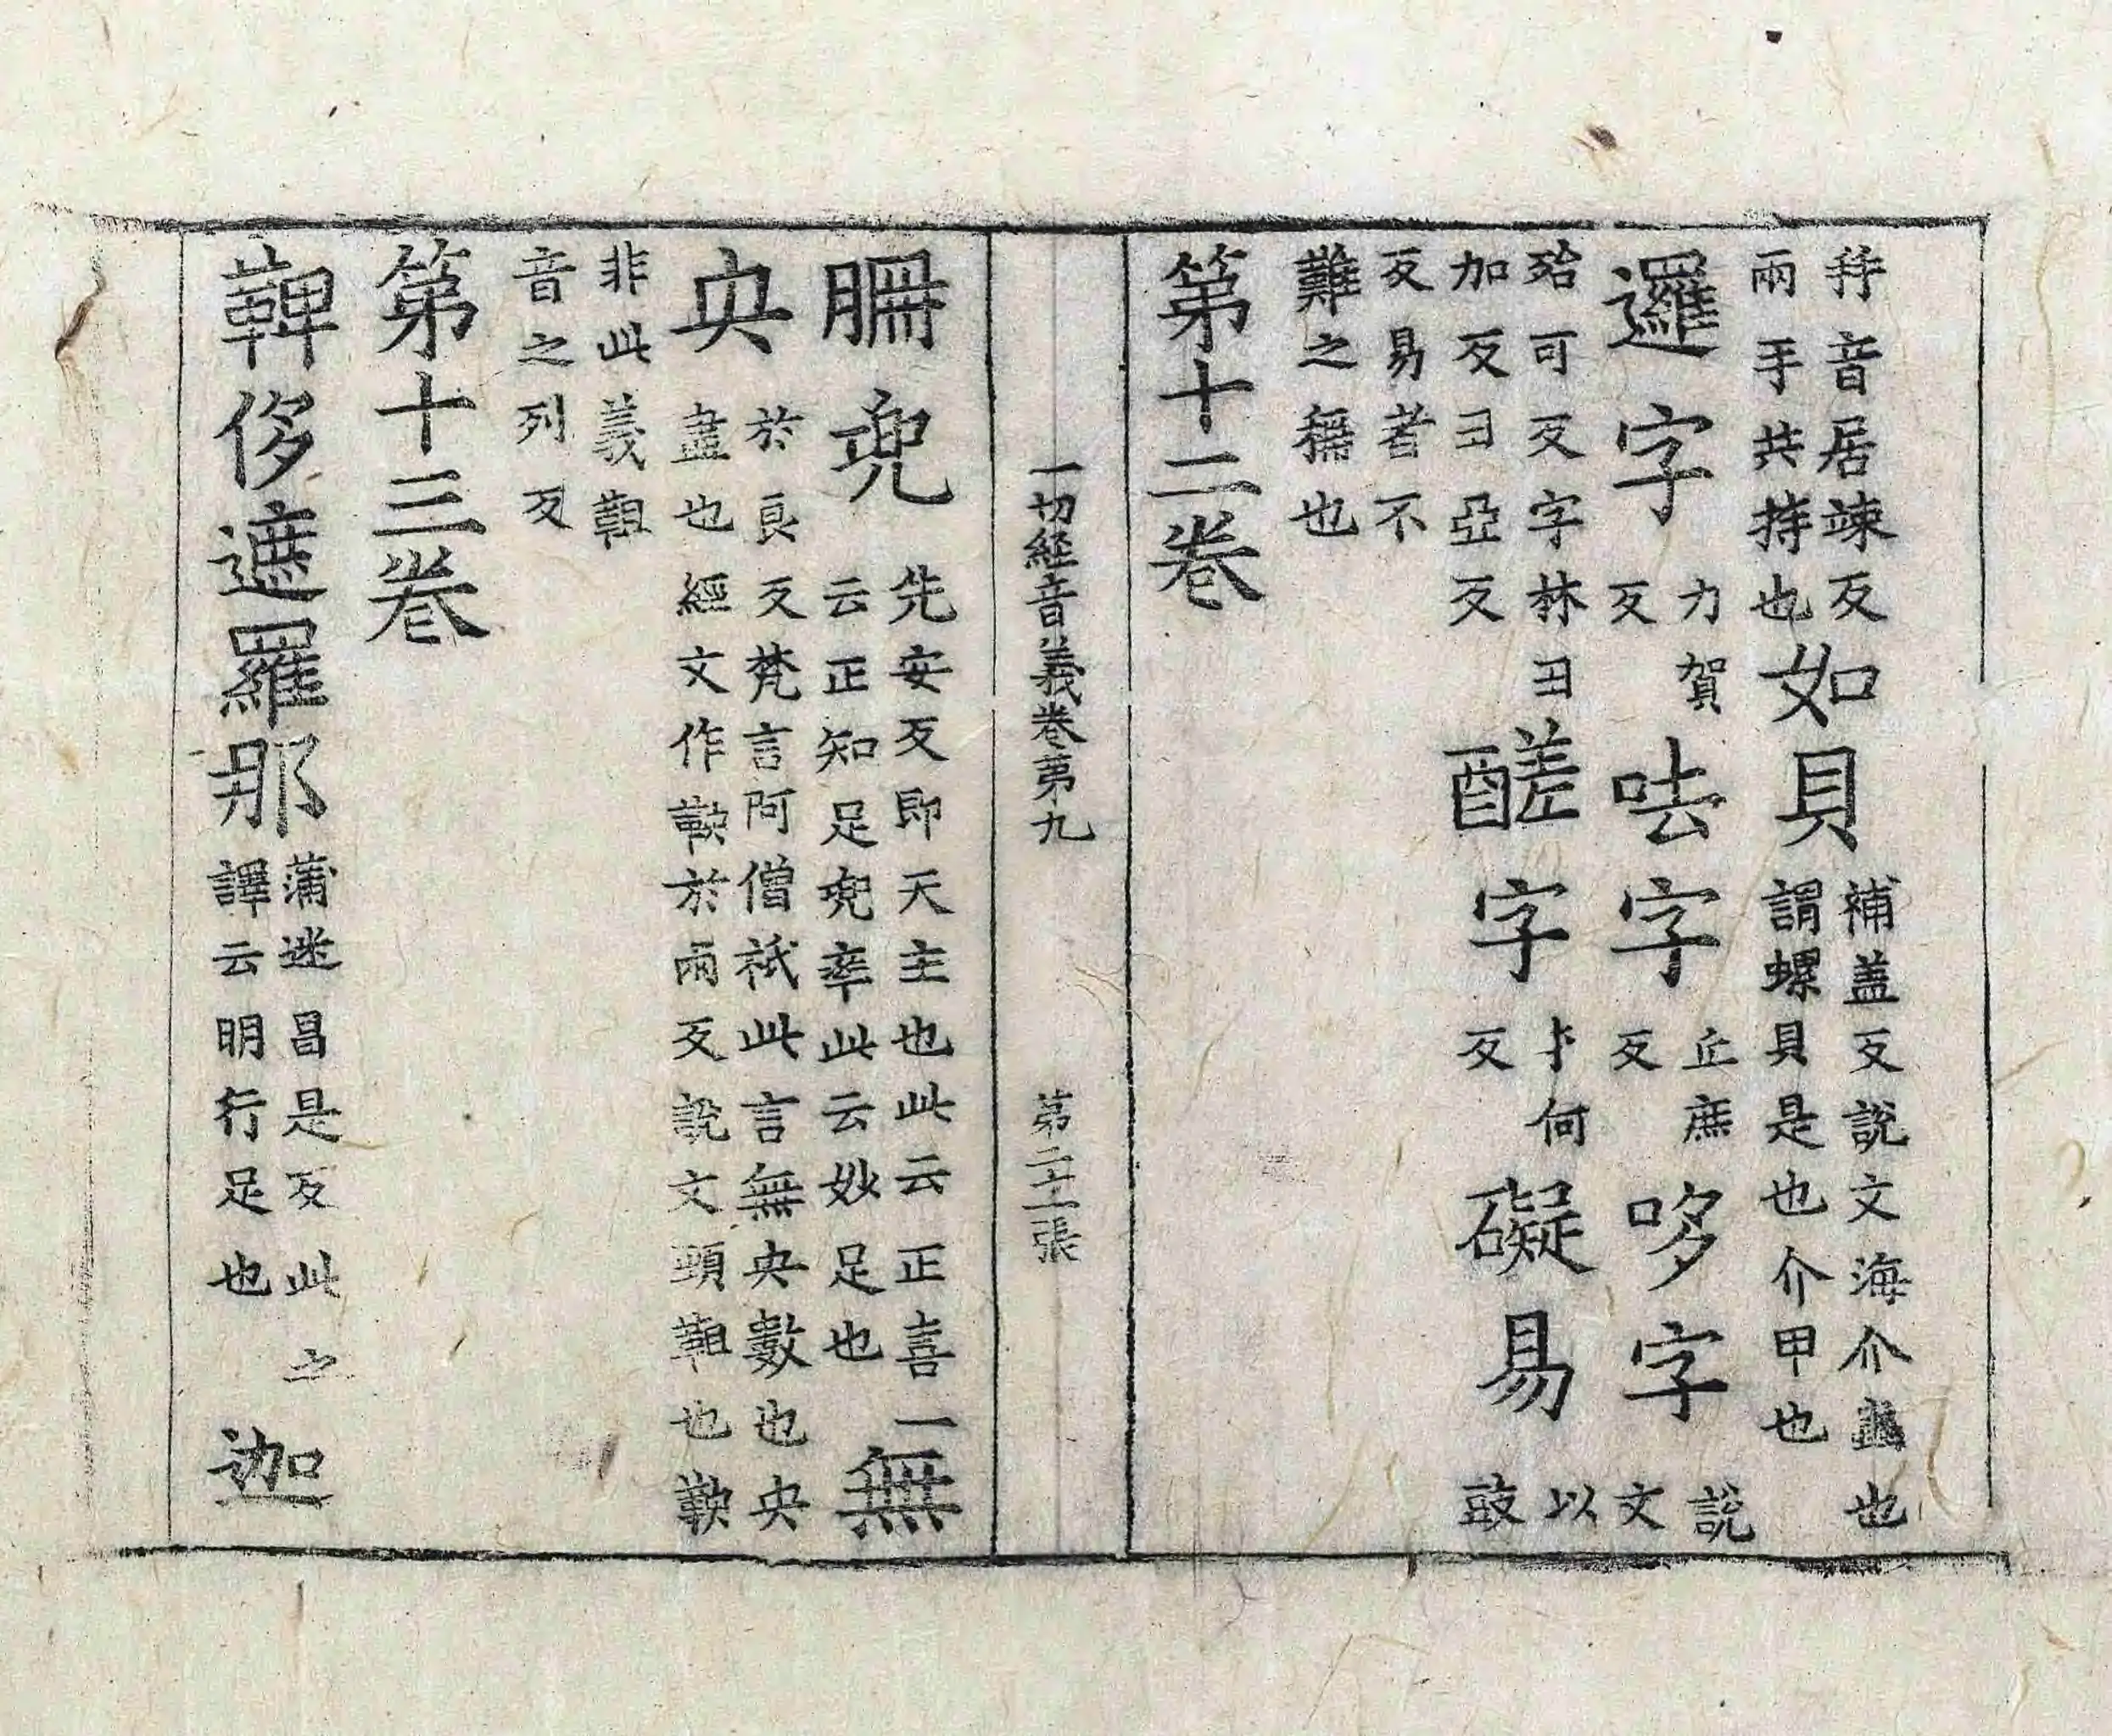 音居竦反
兩手共持也
如貝
補盖反說文海介蟲也
謂螺貝是也介甲也
邏字
力賀
反
呿字
丘庶
反
哆字
說
文
殆可反字林丑
加反丑亞反
醝字
才何
反
礙易
以
豉
反易者不
難之稱也
第十二卷
一切経音義卷第九
第二十二張
兜
先安反即天主也此云正喜一
云正知足兜率此云妙足也
無
央
於良反梵言阿僧祇此言無央數也央
盡也經文作鞅於兩反說文頸靼也鞅
非此義靼
音之列反
第十三卷
鞞侈遮羅那
蒲迷昌是反此之
譯云明行足也
迦